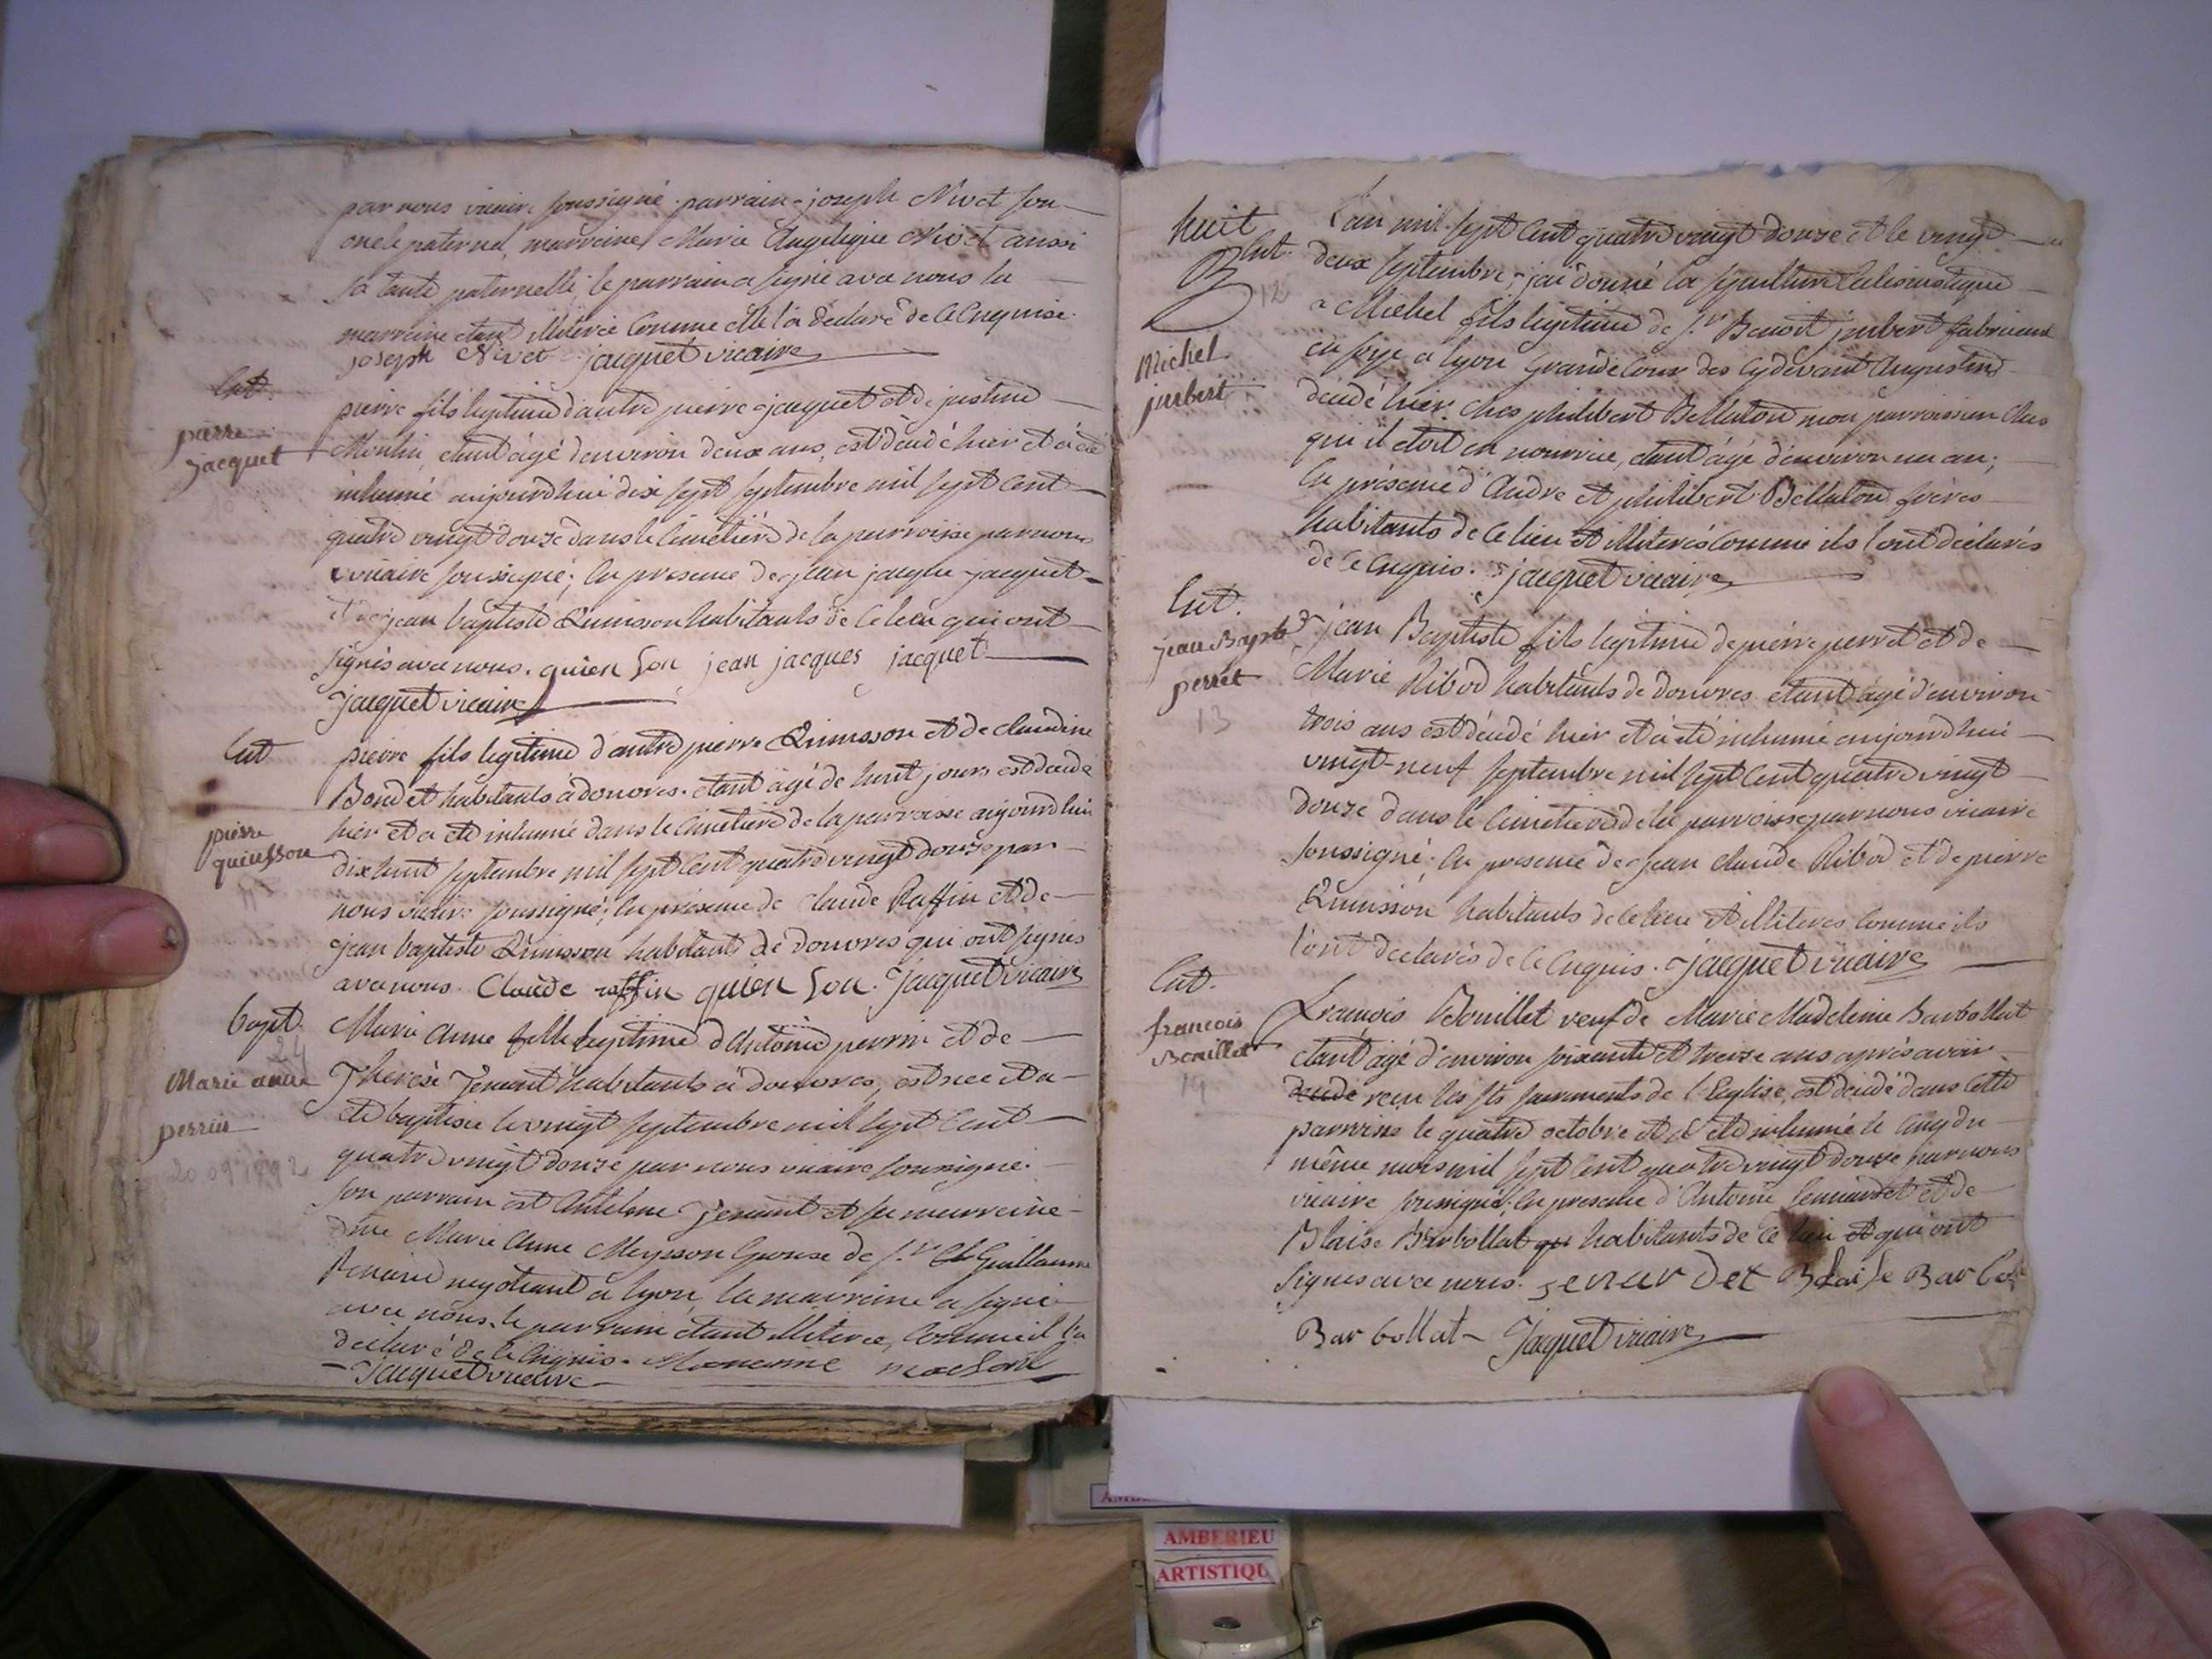 par nous vicaire soussigné. parrain joseph Nivet son
oncle paternel, marreine Marie Angelique Nivet aussi
sa tante paternelle, le parrain a signé avec nous la
marreine etant illiterée Comme elle l'a déclaré de ce Enquise.
joseph Nivet jacquet vicaire
Ent.
pierre
jacquet
pierre fils legitime d'autre pierre jacquet et de justine
Moulin, etant âgé d'environ deux ans, est décédé hier et a été
inhumé aujourd'hui dix sept septembre mil sept cent
quatre vingt douze dans le cimetière de la parroisse par nous
vicaire soussigné; En presence de jean jacque jacquet
et de jean baptiste Quinsson habitants de ce lieu qui ont
signés avec nous. quien Son jean jacques jacquet
jacquet vicaire
Ent
pierre
quiensson
pierre fils legitime d'autre pierre Quinsson et de claudine
Bondet habitants à douvres. etant âgé de huit jours est décédé
hier et a été inhumé dans le cimetiere de la parroisse aujourd'hui
dix huit septembre mil sept cent quatre vingt douze par
nous vicaire soussigné; En présence de Claude Raffin et de
jean baptiste Quinsson habitants de douvres qui ont signés
avec nous. Claude raffin quien Son. Jacquet vicaire
bapt.
24
Marie anne
perrin
20 09 1792
Marie Anne fille legitime d'Antoine perrin et de
Therèse Jenant habitants à douvres, est née et a
été baptisée le vingt septembre mil sept Cent
quatre vingt douze par nous vicaire soussigné.
son parrain est Antelme Jenant et sa marreine
dme Marie Anne Meysson Epouse de Sr Guillaume
negotiant à lyon la marreine a signé
avec nous, le parrain étant illiteré, Comme il l'a
déclaré de ce Enquis.
Jacquet vicaire
huit
Ent.
12
Michel
jubert
L'an mil sept Cent quatre vingt douze et le vingt
deux septembre, j'ai donné la sepulture Eclesiastique
a Michel fils legitime de Sr Benoit jubert fabricant
en soye a lyon Grande Cour des cy devant Augustins
décédé hier chez philibert Bellaton mon parroissien chez
qui il etoit en nourrice, etant âgé d'environ un an;
En présence d'André et philibert Bellaton frères
habitants de ce lieu et illiterés Comme ils l'ont déclarés
de ce Enquis. jacquet vicaire
Ent.
jean Bapte
perret
13
jean Baptiste fils legitime de pierre perret et de
Marie Ribod habitants de douvres etant âgé d'environ
trois ans est décédé hier et a été inhumé aujourd'hui
vingt-neuf septembre mil sept Cent quatre vingt
douze dans le cimetiere de la parroisse par nous vicaire
soussigné; En presence de jean claude Ribod et de pierre
Quinsson habitants de ce lieu et illiteres Comme ils
l'ont declarés de ce Enquis. jacquet vicaire
Ent.
francois
Bouillet
14
François Bouillet veuf de Marie Madeleine Barbollat
etant âgé d'environ soixante et treize ans après avoir
decédé reçu les sts sacrements de l'Eglise, est décédé dans cette
parroisse le quatre octobre et a été inhumé le cinq du
même mois mil sept Cent quatre vingt douze par nous
vicaire soussigné; En presence d'Antoine et de
Blaise Barbollat qui habitants de ce lieu et qui ont
signés avec nous. Blaise Barbo
Barbollat Jacquet vicaire
AMBERIEU
ARTISTIQU